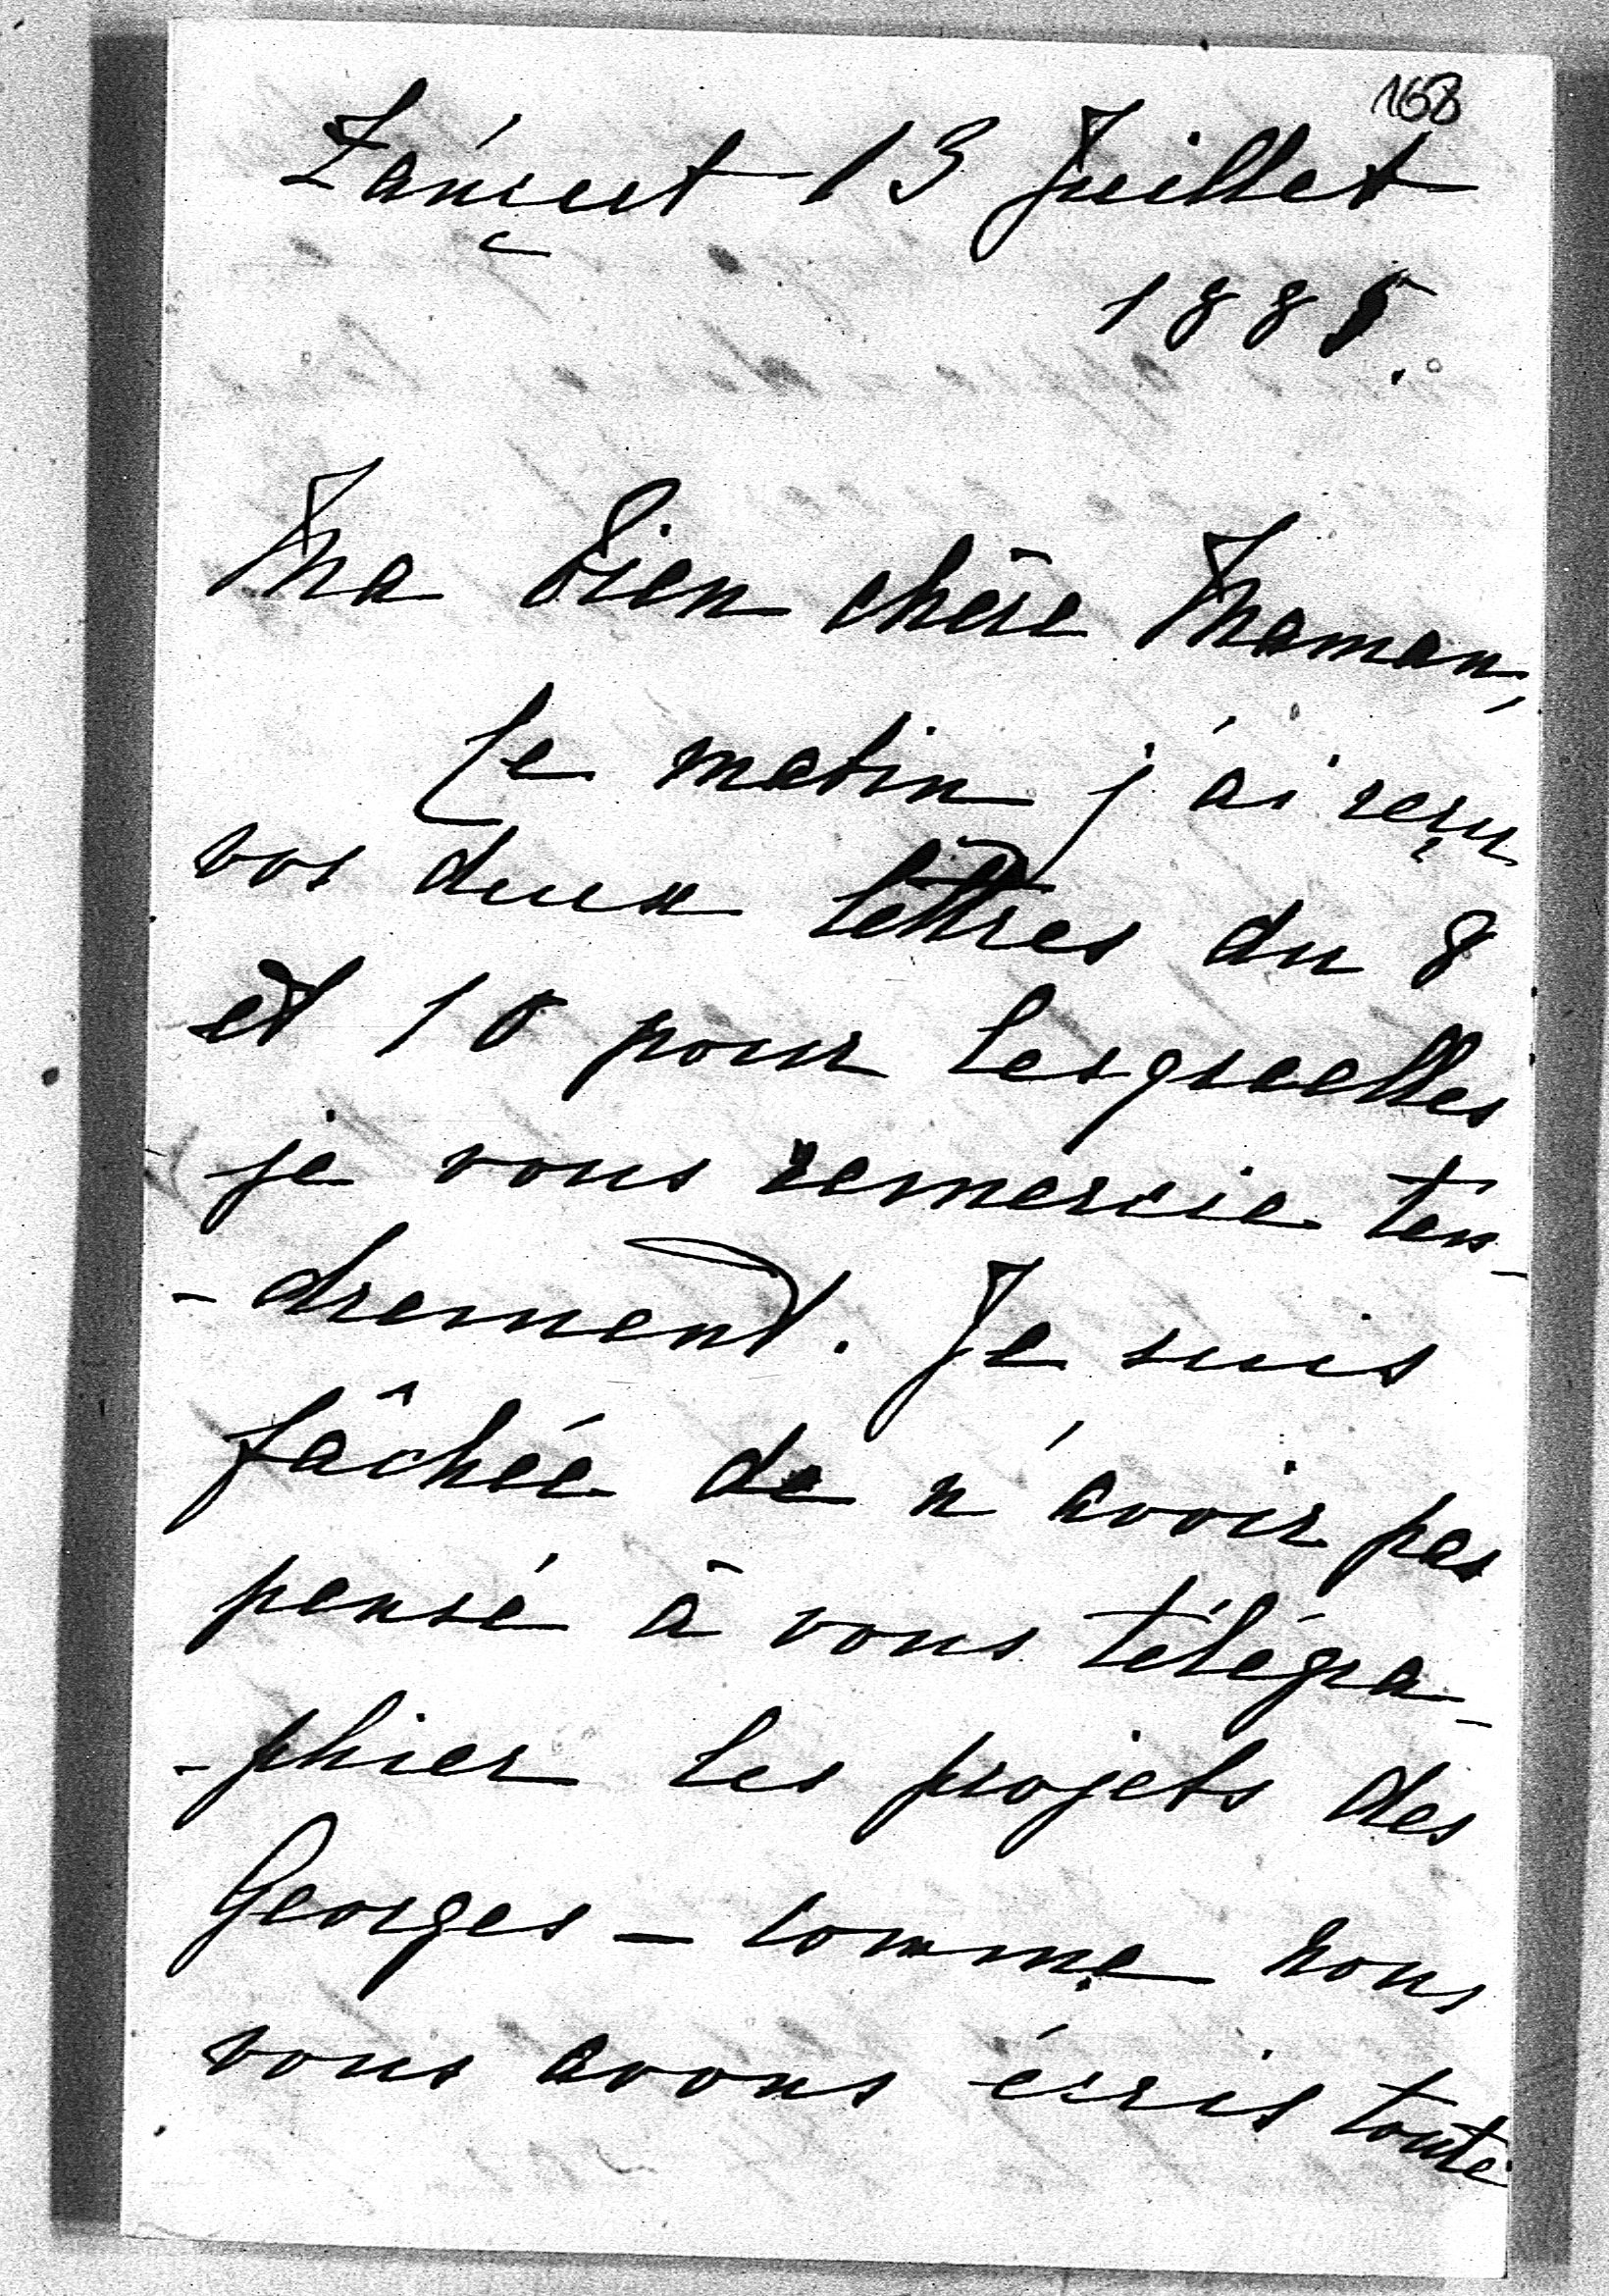 168
Łańcut 13 Juillet
1885.
Ma bien chère Maman,
Ce matin j'ai reçu
vos deux lettres du 8
et 10 pour lesquelles
je vous remercie ten-
-drement. Je suis
fâchée de n'avoir pas
pensé à vous télégra-
-phier les projets des
Georges – comme nous
vous avons écris toute